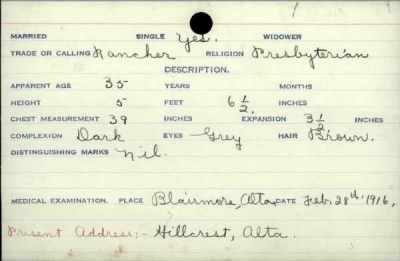 MARRIED SINGLE Yes. WIDOWER
TRADE OR CALLING Rancher RELIGION Presbyterian
DESCRIPTION.
APPARENT AGE 35 YEARS MONTHS
HEIGHT 5 FEET 6 1/2. INCHES
CHEST MEASUREMENT 39 INCHES EXPANSION 3 1/2 INCHES
COMPLEXION Dark EYES Grey HAIR Brown.
DISTINGUISHING MARKS Nil.
MEDICAL EXAMINATION. PLACE Blairmore, Alta, DATE Feb. 28th 1916,
Present Address:- Hillcrest, Alta.